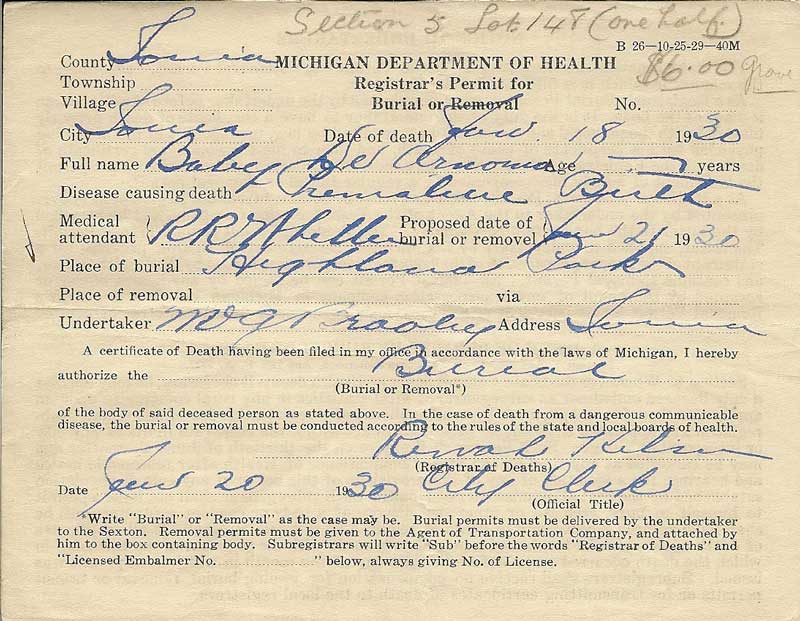 Section 5 Lot 148 (one half.)
B 26—10-25-29—40M
County Ionia MICHIGAN DEPARTMENT OF HEALTH
$6.00 grave
Township Registrar's Permit for
Village Burial or Removal No.
City Ionia Date of death Jan. 18 1930
Full name Baby De Age years
Disease causing death Premature Birth
Medical attendant R R Proposed date of burial or removel Jan 21 1930
Place of burial Highland Park
Place of removal via
Undertaker Address Ionia
A certificate of Death having been filed in my office in accordance with the laws of Michigan, I hereby
authorize the Burial
(Burial or Removal*)
of the body of said deceased person as stated above. In the case of death from a dangerous communicable
disease, the burial or removal must be conducted according to the rules of the state and local boards of health.
(Registrar of Deaths)
Date Jan 20 1930 City Clerk
(Official Title)
*Write "Burial" or "Removal" as the case may be. Burial permits must be delivered by the undertaker
to the Sexton. Removal permits must be given to the Agent of Transportation Company, and attached by
him to the box containing body. Subregistrars will write "Sub" before the words "Registrar of Deaths" and
"Licensed Embalmer No. " below, always giving No. of License.